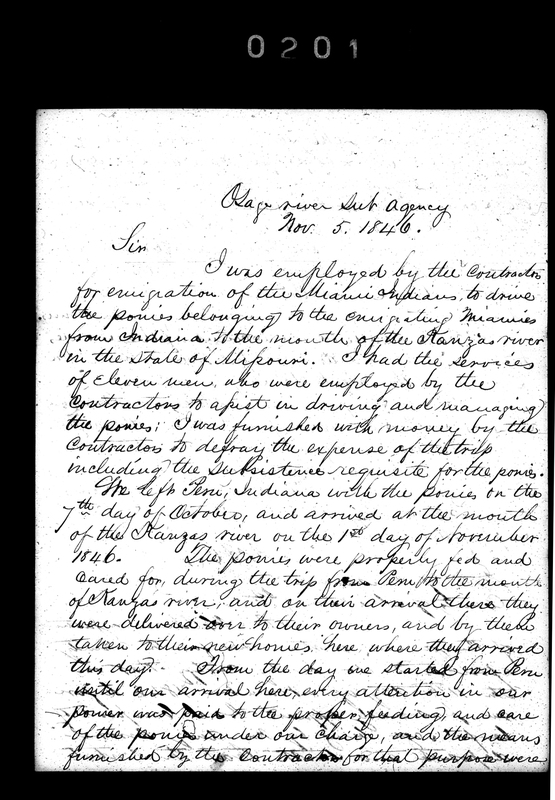 0201
Osage river Sub Agency
Nov. 5. 1846.
Sir
I was employed by the Contractors
for emigration of the Miami Indians, to drive
the ponies belonging to the emigrating Miamies
from Indiana to the mouth of the Kanzas river
in the State of Missouri. I had the services
of eleven men, who were employed by the
Contractors to assist in driving and managing
the ponies; I was furnished with money by the
Contractors to defray the expense of the trip
including the Subsistence requisite for the ponies.
We left Peru, Indiana with the ponies on the
7th day of October, and arrived at the mouth
of the Kanzas river on the 1st day of November
1846. The ponies were properly fed and
cared for, during the trip from Peru to the mouth
of Kanzas river, and on their arrival there they
were delivered over to their owners, and by them
taken to their new homes here where they arrived
this day. From the day we started from Peru
until our arrival here, every attention in our
power was paid to the proper feeding, and care
of the ponies under our charge, and the means
furnished by the Contractors for that purpose were